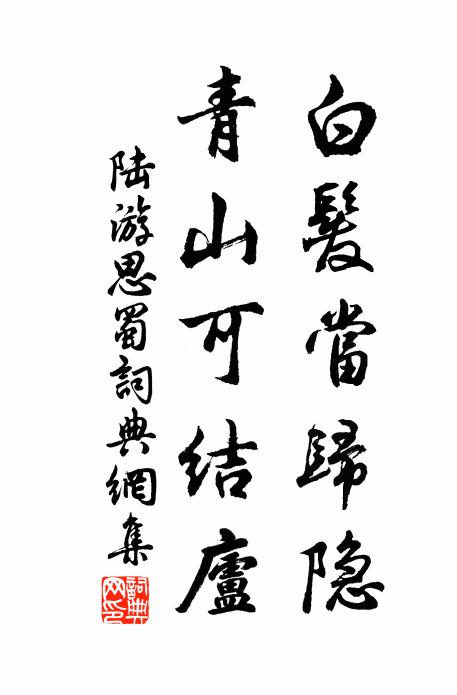 白髮當歸隐
青山可结廬
陆游思蜀詞典網集
詞典网印